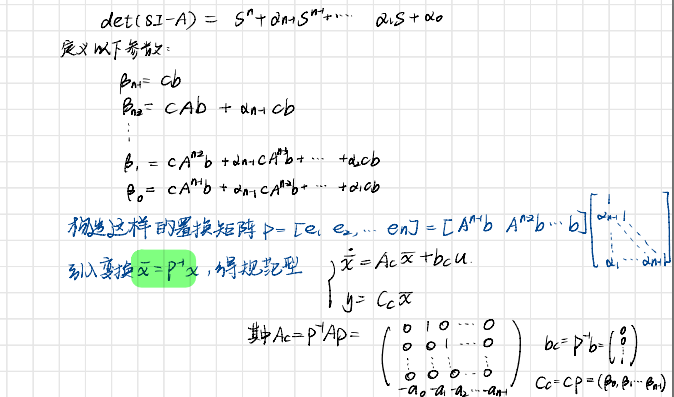 det(SI-A) = Sⁿ + αₙ₋₁Sⁿ⁻¹ + ⋯ α₁S + α₀
定义以下参数:
βₙ₋₁ = cb
βₙ₋₂ = cAb + αₙ₋₁cb
⋮
β₁ = cAⁿ⁻²b + αₙ₋₁cAⁿ⁻³b + ⋯ + α₂cb
β₀ = cAⁿ⁻¹b + αₙ₋₁cAⁿ⁻²b + ⋯ + α₁cb
构造这样的置换矩阵 P = [e₁ e₂, ⋯ eₙ] = [Aⁿ⁻¹b Aⁿ⁻²b ⋯ b] [1 αₙ₋₁ 1 ⋮ ⋱ α₁ ⋯ αₙ₋₁ 1]
引入变换 x̄ = P⁻¹x, 得规范型 { ẋ̄ = Ac x̄ + bc u
y = Cc x̄
其中 Ac = P⁻¹AP = (0 1 0 ⋯ 0
0 0 1 ⋯ 0
⋮ ⋮
0 0 0 ⋯ 0
-a₀ -a₁ -a₂ ⋯ -aₙ₋₁)
bc = P⁻¹b = (0 0 ⋮ 1)
Cc = CP = (β₀, β₁ ⋯ βₙ₋₁)